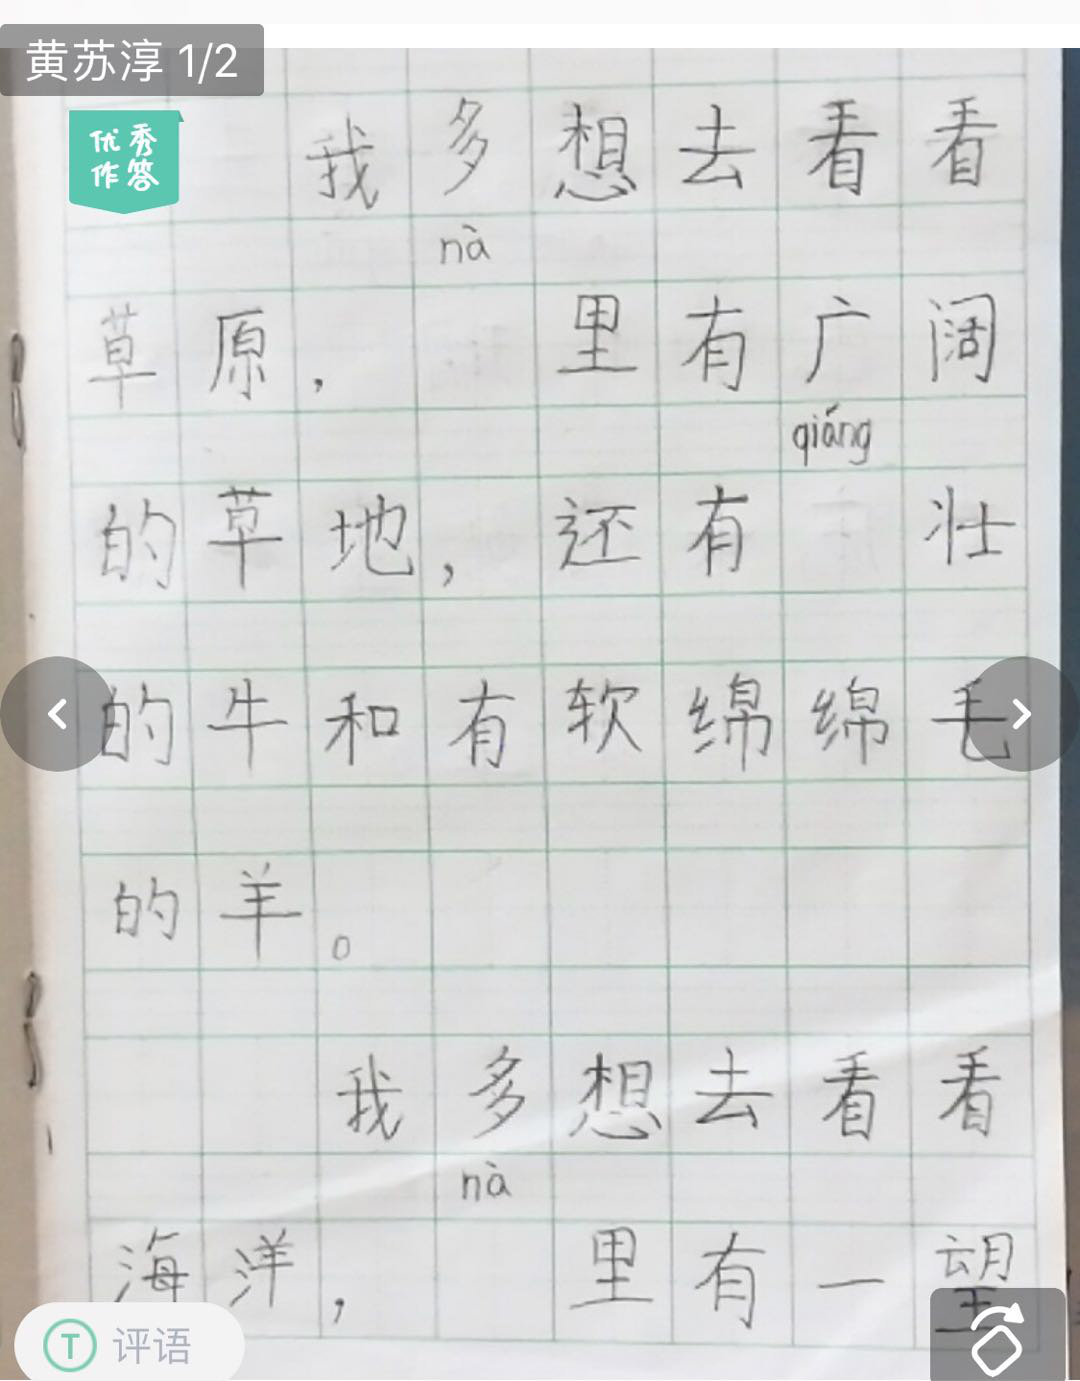 黄苏淳 1/2
优秀
作答
我多想去看看
nà
草原， 里有广阔
qiáng
的草地，还有 壮
的牛和有软绵绵毛
的羊。
我多想去看看
nà
海洋， 里有一望
T 评语